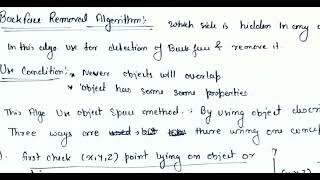 Backface Removal Algorithm:- Which side is hidden in any o
In this algo use for detection of Back face & remove it.
Use Condition:- • Never objects will overlap.
• Object has some some properties
This Algo Use object Space method. : By using object descri
Three ways are there using on concep
1. first check (x,y,z) point lying on object or